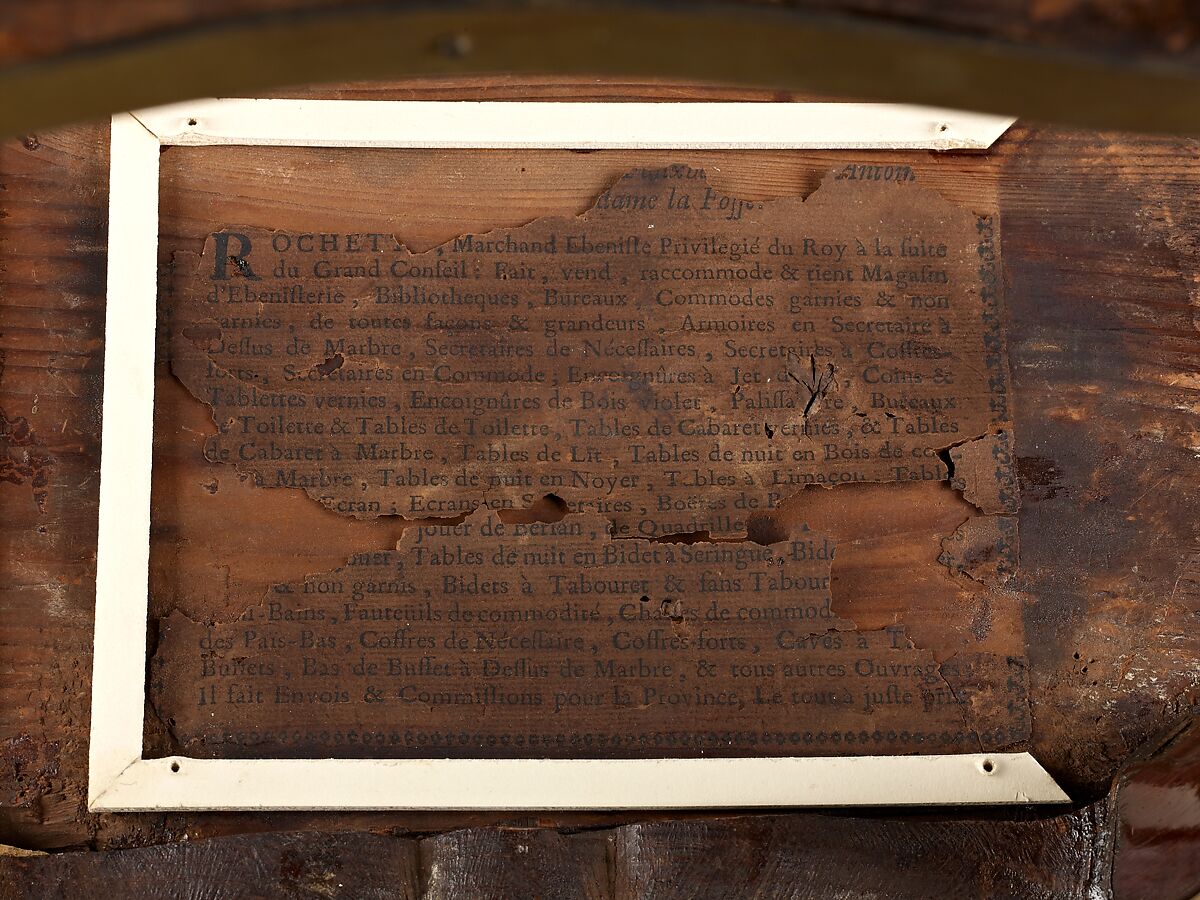 Antoin
dame la Fosse.
ROCHETT , Marchand Ebeniſte Privilegié du Roy à la ſuite
du Grand Conſeil : Fait , vend , raccommode & tient Magaſin
d'Ebeniſterie , Bibliotheques , Bureaux , Commodes garnies & non
garnies , de toutes façons & grandeurs , Armoires en Secretaire à
Deſſus de Marbre , Secretaires de Néceſſaires , Secretaires à Coffres-
forts , Secretaires en Commode ; Encoignûres à Jet , Coins &
Tablettes vernies , Encoignûres de Bois violet , Bureaux
Toilette & Tables de Toilette , Tables de Cabaret vernies , & Tables
de Cabaret à Marbre , Tables de Lit , Tables de nuit en Bois de
à Marbre , Tables de nuit en Noyer , Tables à Limaçon , Tabl
Ecran ; Ecrans en , Boëtes de
jouer de Berlan , de Quadrille
Tables de nuit en Bidet à Seringue , Bid
& non garnis , Bidets à Tabouret & ſans Tabour
-Bains , Fauteüils de commodité , Chaiſes de commod
des Païs-Bas , Coffres de Néceſſaire , Coffres-forts , Caves à
Buffets , Bas de Buffet à Deſſus de Marbre , & tous autres Ouvrages
Il fait Envois & Commiſſions pour la Province, Le tout à juſte prix